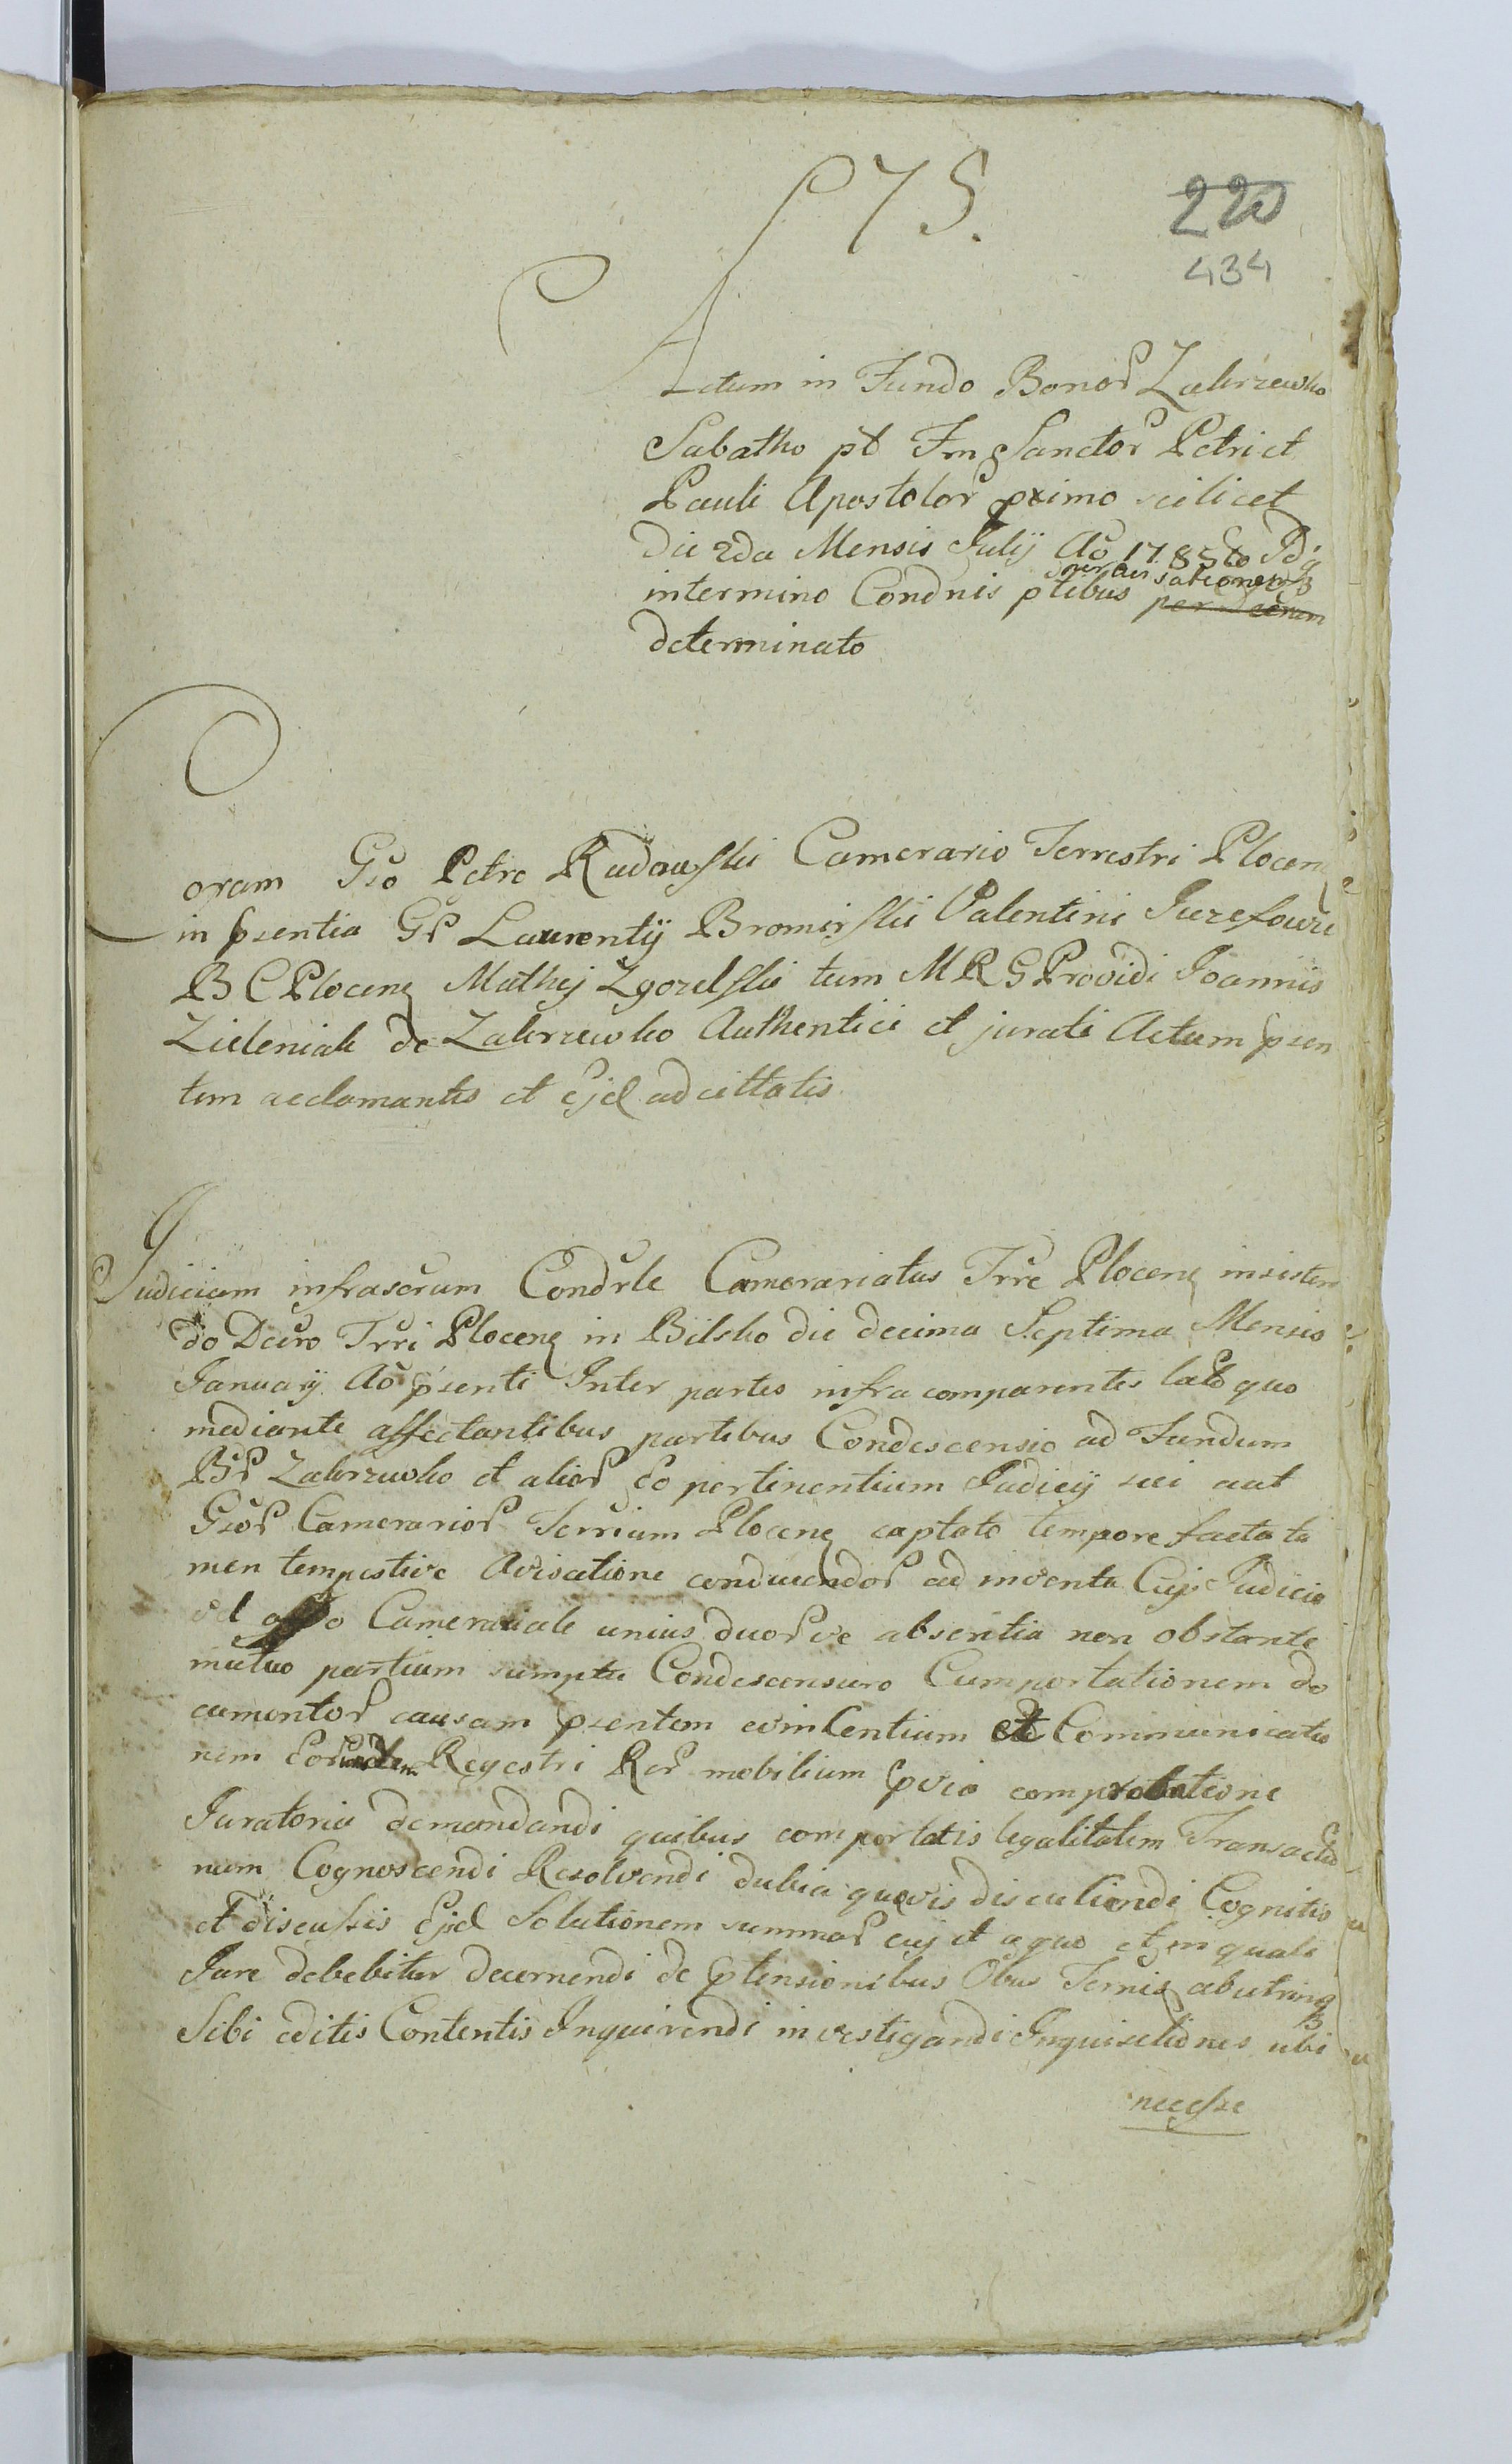 575.
220
434
Actum in Fundo Bonor Zakrzewko
Sabatho pt Fm Sanctor Petri et
Pauli Apostolor pximo scilicet
Die 2da Mensis Julij Ao 1785to
per avisationem
intermino Condnis ptibus per
determinato
Coram Gso Petro Radowski Camerario Terrestri Plocen
in psentia Gr Laurentij Bromirski Valentini Juzefowi
B C Plocen Mathej Zgorzelski tum M R G Providi Joannis
Zieleniak de Zakrzewko Authentici et jurati Actum psen
tem acclamantis et Ejd adcittatis
Judicium infrascrum Condrle Camerariatus Trre Plocen insisten
do Decro Trri Plocen in Bilsko die decima Septima Mensis
January Ao psenti Inter partes infra comparentes lato quo
mediante affectantibus partibus Condescensio ad Fundum
Br Zakrzewko et alior eo pertinentium Judicij sui aut
Gsor Camerarior Terrium Plocen captato tempore facta ta
men tempestive Avisatione conducendor ad inventa Cujs Judicio
vel Camerariale unius duorve absentia non obstante
mutuo partium sumptu Condescensuro Cumportationem do
cumentor causam psentem evincentium et Communicatio
nem Eorundem Regestri Rer mobilium pvia comprobatione
Juratoria demandandi quibus comportatis legalitatem Transactio
num Cognoscendi Resolvendi dubia quovis discutiendi Cognitis
et discussis Ejd Solutionem summar cuj et a quo et in quali
Jure debebitur decernendi de ptensionibus Obus Ternis abutrinq
Sibi editis Contentis Inquirendi investigandi Inquisitiones ubi
necesse